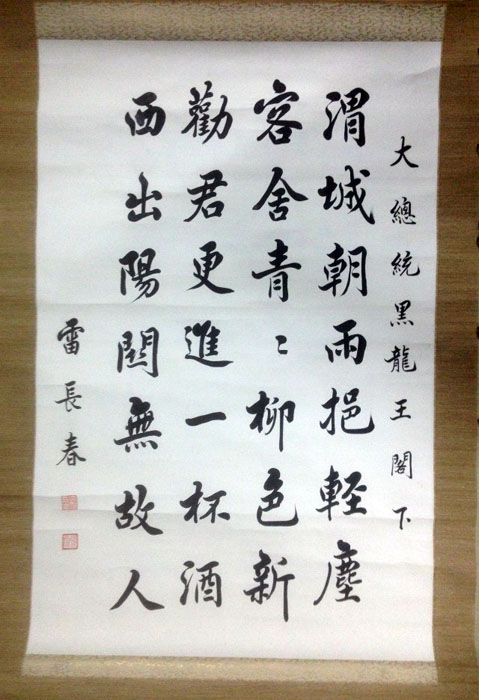 大總統黑龍王閣下
渭城朝雨挹輕塵
客舍青〻柳色新
勸君更進一杯酒
西出陽關無故人
雷長春